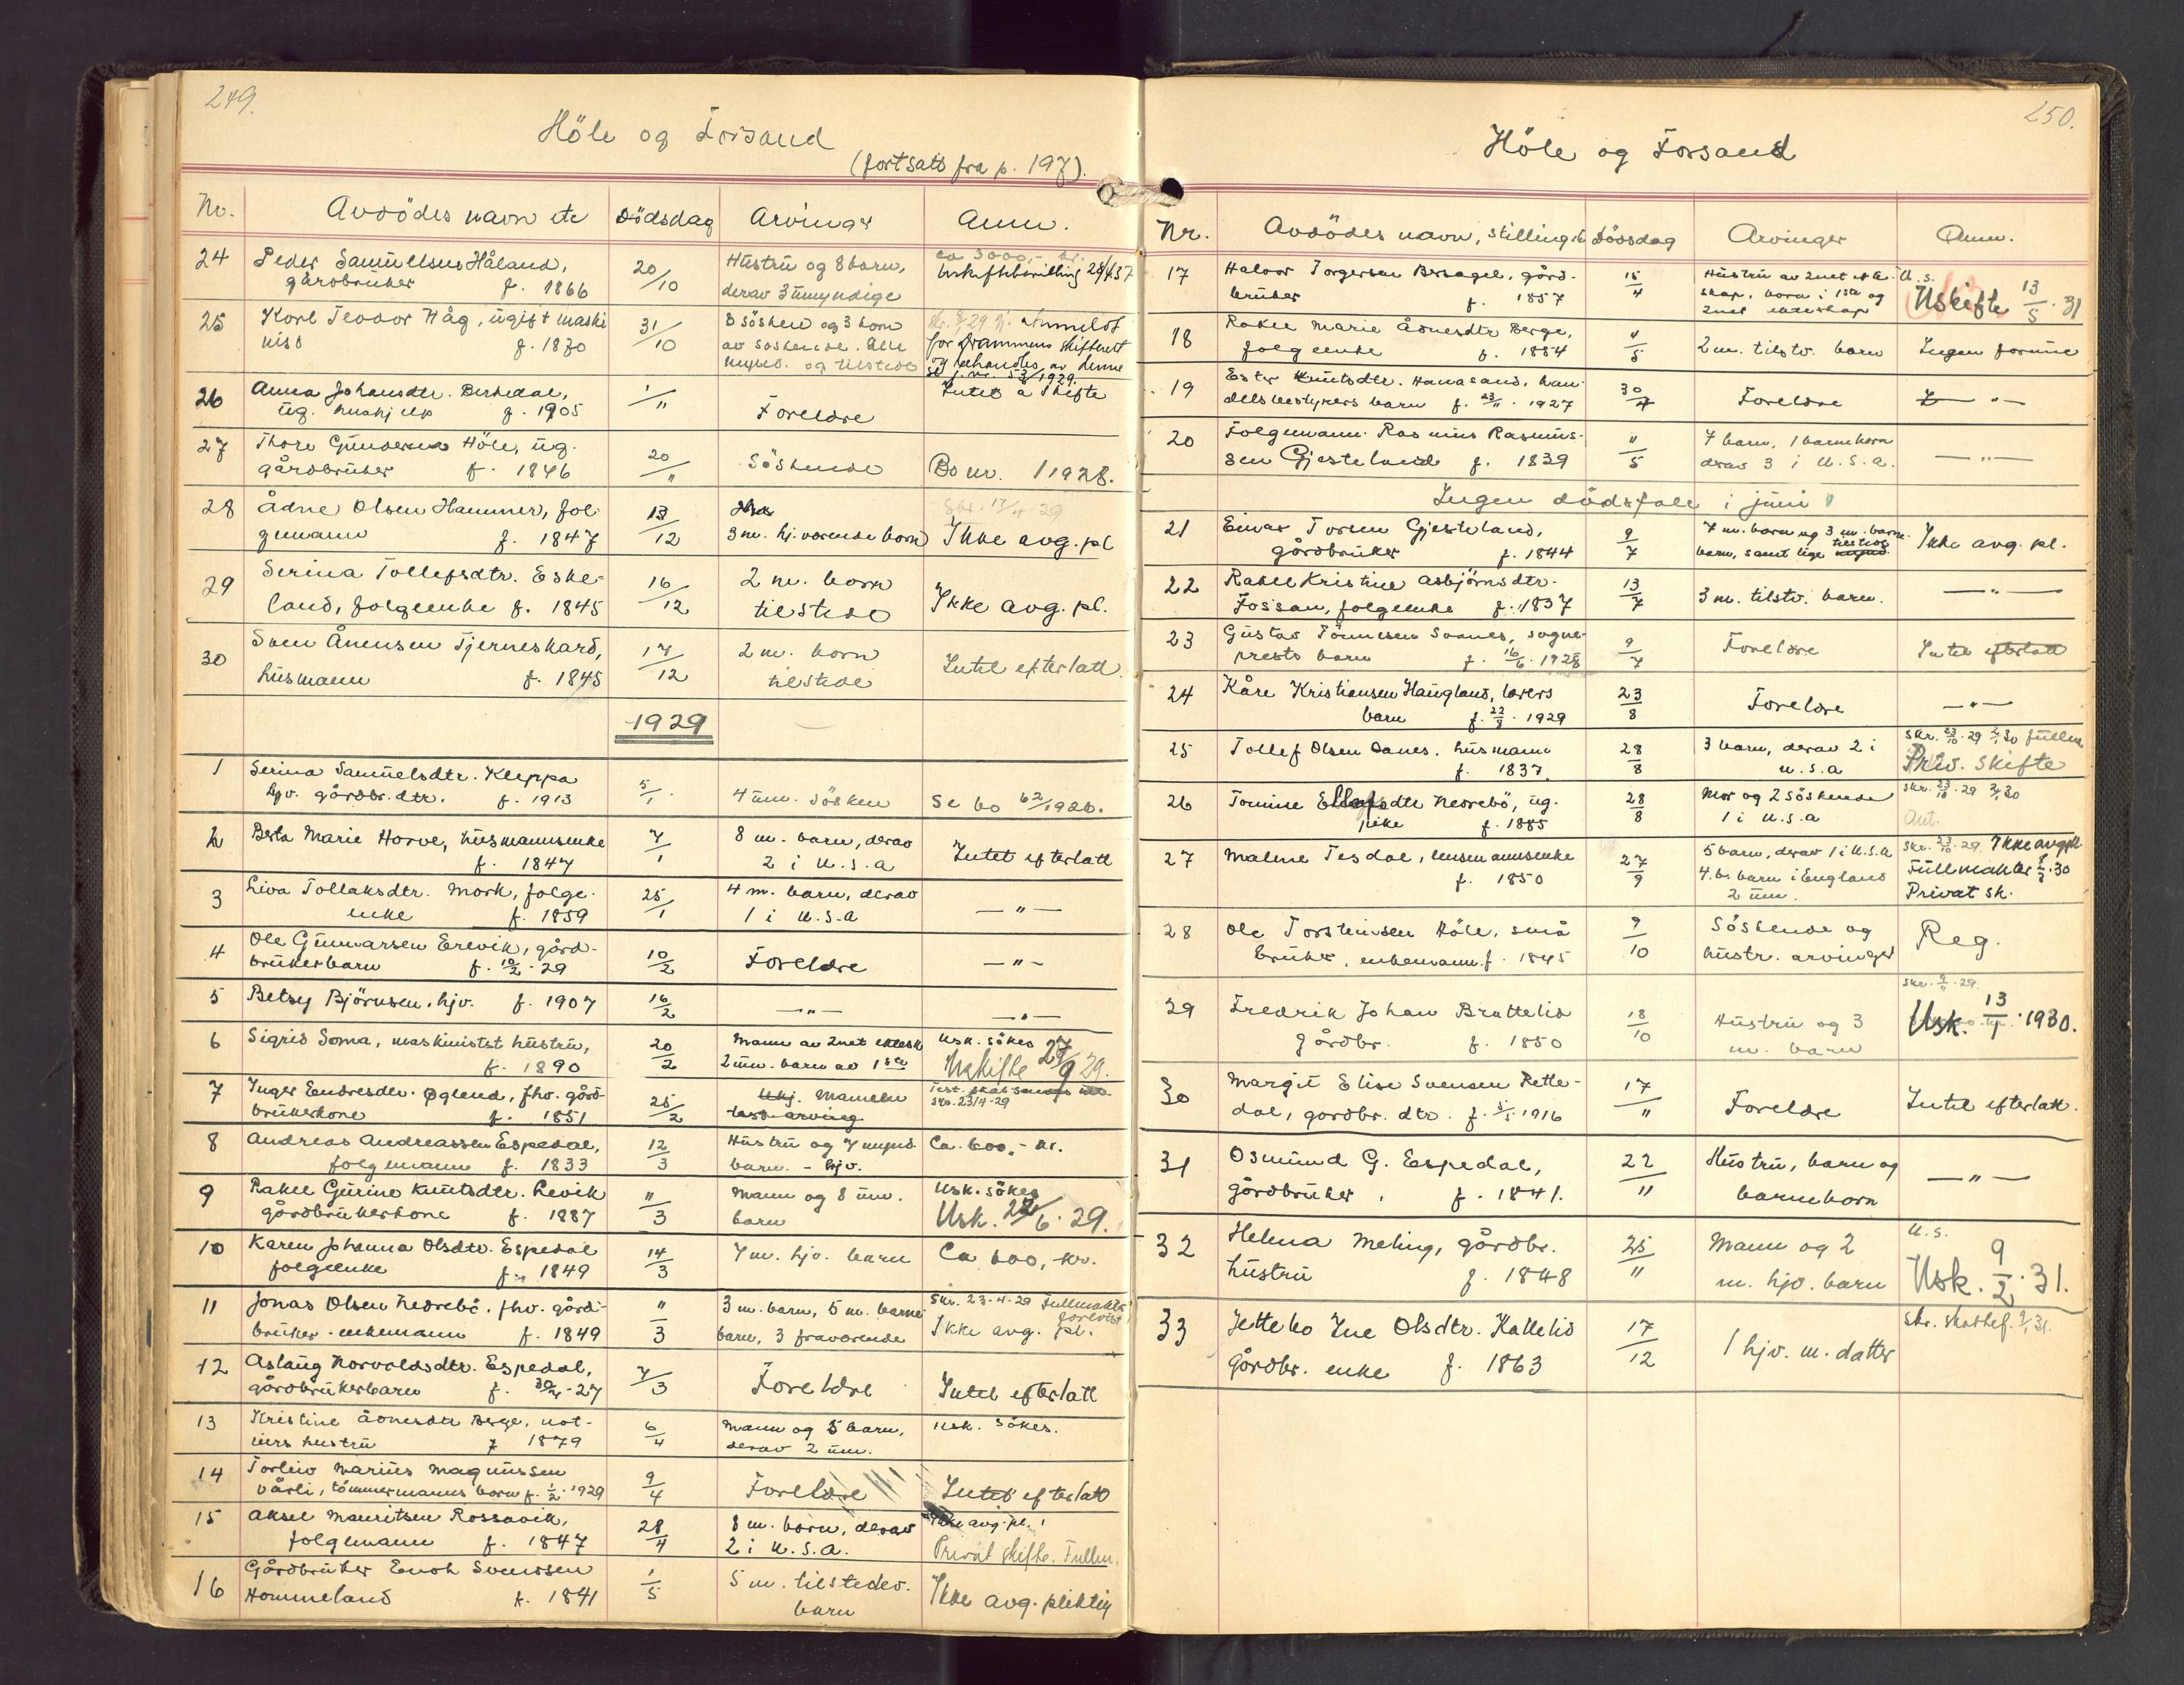 249.
Höle og Forsand
(fortsatt fra p. 197).
Nr. Avdödes navn etc Dödsdag Arvinger Anm.
24 Peder Samuelsens Håland, 20/10 Hustru og 8 barn, ca 3000,- kr.
gårdbruker f. 1866 derav 3 umyndige Uskiftebevilling 28/1.37
25 Karl Teodor Håg, ugift maski 31/10 8 söskend og 3 barn Anmeldt
nist f. 1870 av söskende. Alle for Drammens skifterett
mynd. og tilstede og behandles av denne
se j.nr. 53/1929.
26 Anna Johansdtr. Birkedal, 1/11 Foreldre Intet å skifte
ug. hushjelp f. 1905
27 Thore Gundersen Höle, ug. 20/11 Söskende Bo nr. 1 1928.
gårdbruker f. 1846
28 Ådne Olsen Hammer, fol- 13/12 Skr. 17/4 29
gemann f. 1847 3 m. hj. værende barn Ikke avg. pl
29 Serina Tollefsdtr. Eske- 16/12 2 m. barn Ikke avg. pl.
land, folgeenke f. 1845 tilstede
30 Sven Ånensen Tjerneskard, 17/12 2 m. barn Intet efterlatt
husmann f. 1845 tilstede
1929
1 Serina Samuelsdtr. Kleppa 5/1 4 um. Sösken Se bo 62/1926.
hjv. gårdbr. dtr. f. 1913
2 Berta Marie Horve, husmannsenke 7/1 8 m. barn, derav Intet efterlatt
f. 1847 2 i U.S.A
3 Liva Tollaksdtr. Mork, folge- 25/1 4 m. barn, derav —"—
enke f. 1859 1 i U.S.A
4 Ole Gunnarsen Erevik, gård- 10/2 Foreldre —"—
brukerbarn f. 10/2-29
5 Betsy Björnsen, hjv. f. 1907 16/2 —"— —"—
6 Sigrid Soma, maskinistst hustru, 20/2 Mann av 2net ektesk Usk. sökes
f. 1890 2 um. barn av 1ste Uskifte 27/9 29.
7 Inger Endresdtr. Øglend, fhv. gård- 25/2 Mannen
brukerkone f. 1851 test. arving skr. 23/4-29
8 Andreas Andreassen Espedal, 12/3 Hustru og 7 mynd. Ca. 600,- kr.
folgmann f. 1833 barn. - hjv.
9 Rakel Gurine Knutsdtr. Levik 11/3 Mann og 8 um. Usk. sökes
gårdbrukerkone f. 1887 barn Usk. 28/6. 29.
10 Karen Johanna Olsdtr. Espedal 14/3 7 m. hjv. barn Ca 600,- kr.
folgeenke f. 1849
11 Jonas Olsen Nedrebö, fhv. gård- 11/3 3 m. barn, 5 m. barne Skr. 23-4-29 Fullmakter
bruker. enkemann f. 1849 barn, 3 fraværende Ikke avg. pl.
12 Aslaug Norvaldsdtr. Espedal, 7/3 Foreldre Intet efterlatt
gårdbrukerbarn f. 30/4-27
13 Kristine Ådnesdtr Berge, not- 6/4 Mann og 5 barn, Usk. sökes.
iers hustru f 1879 derav 2 um.
14 Torleiv Marius Magnussen 9/4 Foreldre Intet efterlatt
Vårli, tömmermanns barn f. 1/2. 1929
15 Aksel Mauritsen Rossavik, 28/4 8 m. barn, derav Ikke avg. pl.
folgemann f. 1847 2 i U.S.A. Privat skifte. Fullm.
16 Gårdbruker Enok Svendsen 1/5 5 m. tilstedev. Ikke avg. pliktig
Hommeland f. 1841 barn
250.
Höle og Forsand
Nr. Avdödes navn, stilling etc Dödsdag Arvinger Anm.
17 Halvor Torgersen Bersagel, gård- 15/4 Hustru av 2net ekte- U.s.
bruker f. 1857 skap, barn i 1ste og Uskifte 13/5. 31
2net ekteskap
18 Rakel Marie Ådnesdtr Berge, 11/5 2 m. tilstv. barn Ingen formue
folgeenke f. 1854
19 Ester Knutsdtr. Hanasand, han- 30/4 Foreldre —"—
delsbestyrers barn f. 23/11. 1927
20 Folgemann Rasmus Rasmus- 11/5 7 barn, 1 barnebarn —"—
sen Gjesteland f. 1839 derav 3 i U.S.A.
Ingen dödsfall i juni
21 Einar Torsen Gjesteland, 9/7 7 m. barn og 3 m. barne- Ikke avg. pl.
gårdbruker f. 1844 barn, samt lige tilsted mynd.
22 Rakel Kristine Asbjörnsdtr. 13/7 3 m. tilstv. barn. —"—
Fossan, folgeenke f. 1837
23 Gustav Tönnesen Svanes, sogne- 9/7 Foreldre Intet efterlatt
prests barn f. 16/6. 1928
24 Kåre Kristiansen Haugland, lærers 23/8 Foreldre —"—
barn f. 22/8. 1929
25 Tollef Olsen Eanes. husmann 28/8 3 barn, derav 2 i skr. 23/10. 29 2/1 30 fullm
f. 1837. U.S.A Priv. skifte
26 Tomine Ellefsdtr Nedrebö, ug. 28/8 Mor og 2 söskende skr. 23/10 - 29 2/1 30
pike f. 1885 1 i U.S.A Aut.
27 Malene Tesdal, lensmannsenke 27/9 5 barn, derav 1 i U.S.A skr. 23/10. 29. Ikke avg.pl.
f. 1850 4. b. barn i England Fullmakter
2 um. Privat sk.
28 Ole Torsteinsen Höle, små 9/10 Söskende og Reg.
bruker, enkemann f. 1845 hustr. arvinger
29 Fredrik Johan Brattelid 18/10 Hustru og 3 skr. 9/11. 29.
gårdbr. f. 1850 m. barn Usk. 13/11. 1930.
30 Margit Elise Svensen Rette- 17/11 Foreldre Intet efterlatt.
dal, gardbr. dtr. f. 5/5 1916
31 Osmund G. Espedal, 22/11 Hustru, barn og —"—
gårdbruker, f. 1841. barnebarn
32 Helena Meling, gårdbr. 25/11 Mann og 2 U.s.
hustru f. 1848 m. hjv. barn Usk. 9/2. 31.
33 Jettebo Ine Olsdtr. Kallelid 17/12 1 hjv. m. datter
gårdbr. enke f. 1863